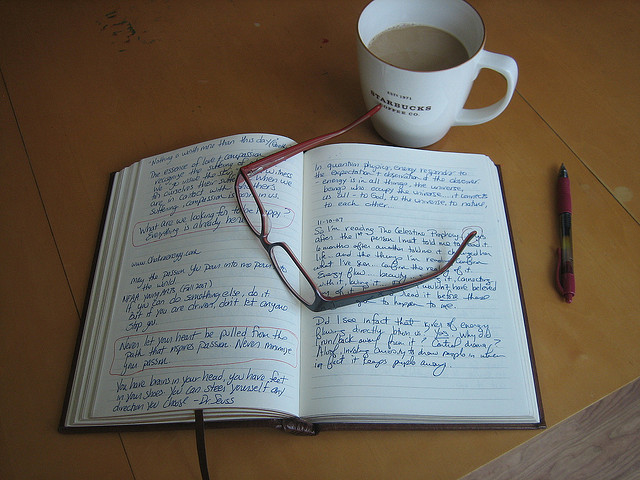 EST 1971
STARBUCKS
COFFEE CO.
Nothing is worth more than this day
The essence of love & compassion
recognize the suffering of
to ourselves their
When we
are in contact with
others
suffering, compassion is born in us.
What are we looking for to be happy?
Everything is already here
www.
May the passion you pour into
the world
NFAA young ARTS (Fall 2007)
If you can do something else, do it
but if you are driven, don't let anyone
stop you.
Never let your heart be pulled from the
path that inspires passion. Never manage
your passion.
You have brains in your head, you have feet
in your shoes. You can steer yourself any
direction you choose! - Dr Seuss
In quantum physics, energy responds to
the expectation & observation of the observer
- energy is in all things, the universe,
beings who occupy the universe. It connects
us all - to God, to the universe, to nature,
to each other.
11-10-07
So I'm reading The Celestine Prophecy
after the 1st person I met told me to read it.
months after another
life. and the things I'm
what I've seen.
the
of it.
Energy flows. beauty
it, connecting
with it,
wouldn't have believed
of it
read it before these
to happen to me.
Did I see in fact that types of energy
flowing directly
Yes, why did
run/back away from it? Control drama?
Aloof, involving curiosity to draw people in when
in fact it keeps people away.